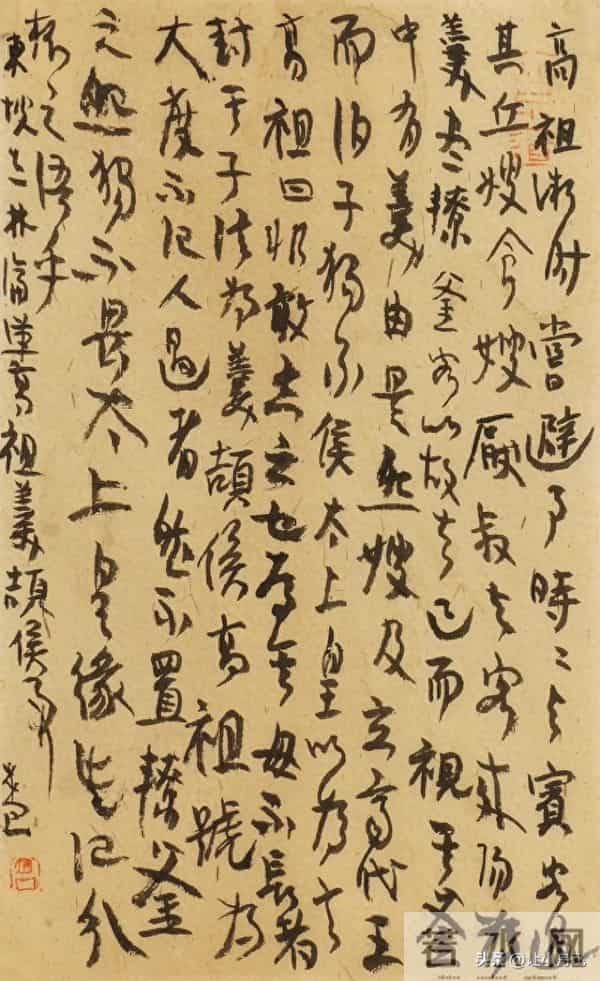 高祖微时嘗避事時〻与賓客過
其丘嫂食嫂厭叔与客來陽為
羹盡轑釜客以故去已而視其釜
中有羹由是怨嫂及立齊代王
而伯子獨不侯太上皇以為言
高祖曰非敢忘之也為其母不長者
封其子信為羹頡侯高祖號為
大度不记人過者然不置轑釜
之怨獨不畏太上皇緣此记分
杯之语乎
東坡志林 高祖羹頡侯事
头条